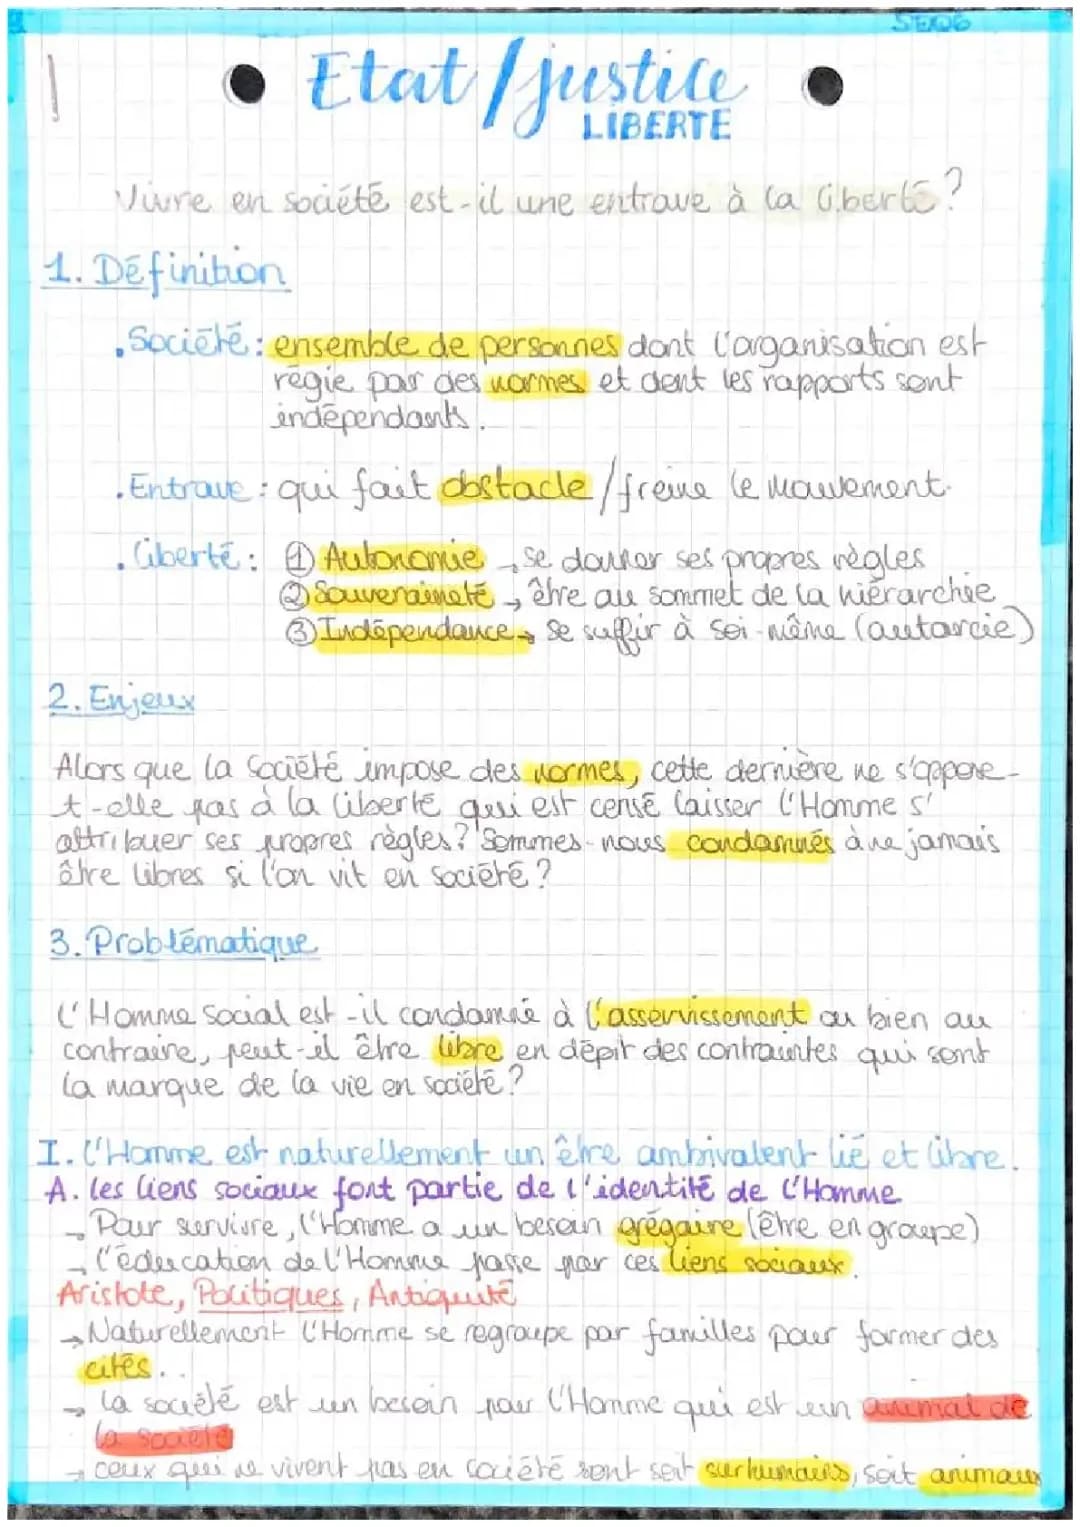 SEQ6
Etat / justice
LIBERTE
Vivre en société est-il une entrave à la liberté ?
1. Définition
. Société : ensemble de personnes dont l'organisation est
régie par des normes et dont les rapports sont
indépendants.
. Entrave : qui fait obstacle / freine le mouvement.
. liberté : ① Autonomie → se donner ses propres règles
② Souveraineté → être au sommet de la hiérarchie
③ Indépendance → se suffir à soi-même (autarcie)
2. Enjeux
Alors que la société impose des normes, cette dernière ne s'oppose-
t-elle pas à la liberté qui est censé laisser l'Homme s'
attribuer ses propres règles ? Sommes-nous condamnés à ne jamais
être libres si l'on vit en société ?
3. Problématique
L'Homme social est-il condamné à l'asservissement ou bien au
contraire, peut-il être libre en dépit des contraintes qui sont
la marque de la vie en société ?
I. L'Homme est naturellement un être ambivalent lié et libre.
A. les liens sociaux font partie de l'identité de l'Homme
→ Pour survivre, l'Homme a un besoin grégaire (être en groupe)
→ l'éducation de l'Homme passe par ces liens sociaux.
Aristote, Politiques, Antiquité
→ Naturellement l'Homme se regroupe par familles pour former des
cités.
→ la société est un besoin pour l'Homme qui est un animal de
la société
→ ceux qui ne vivent pas en société sont soit surhumains, soit animaux